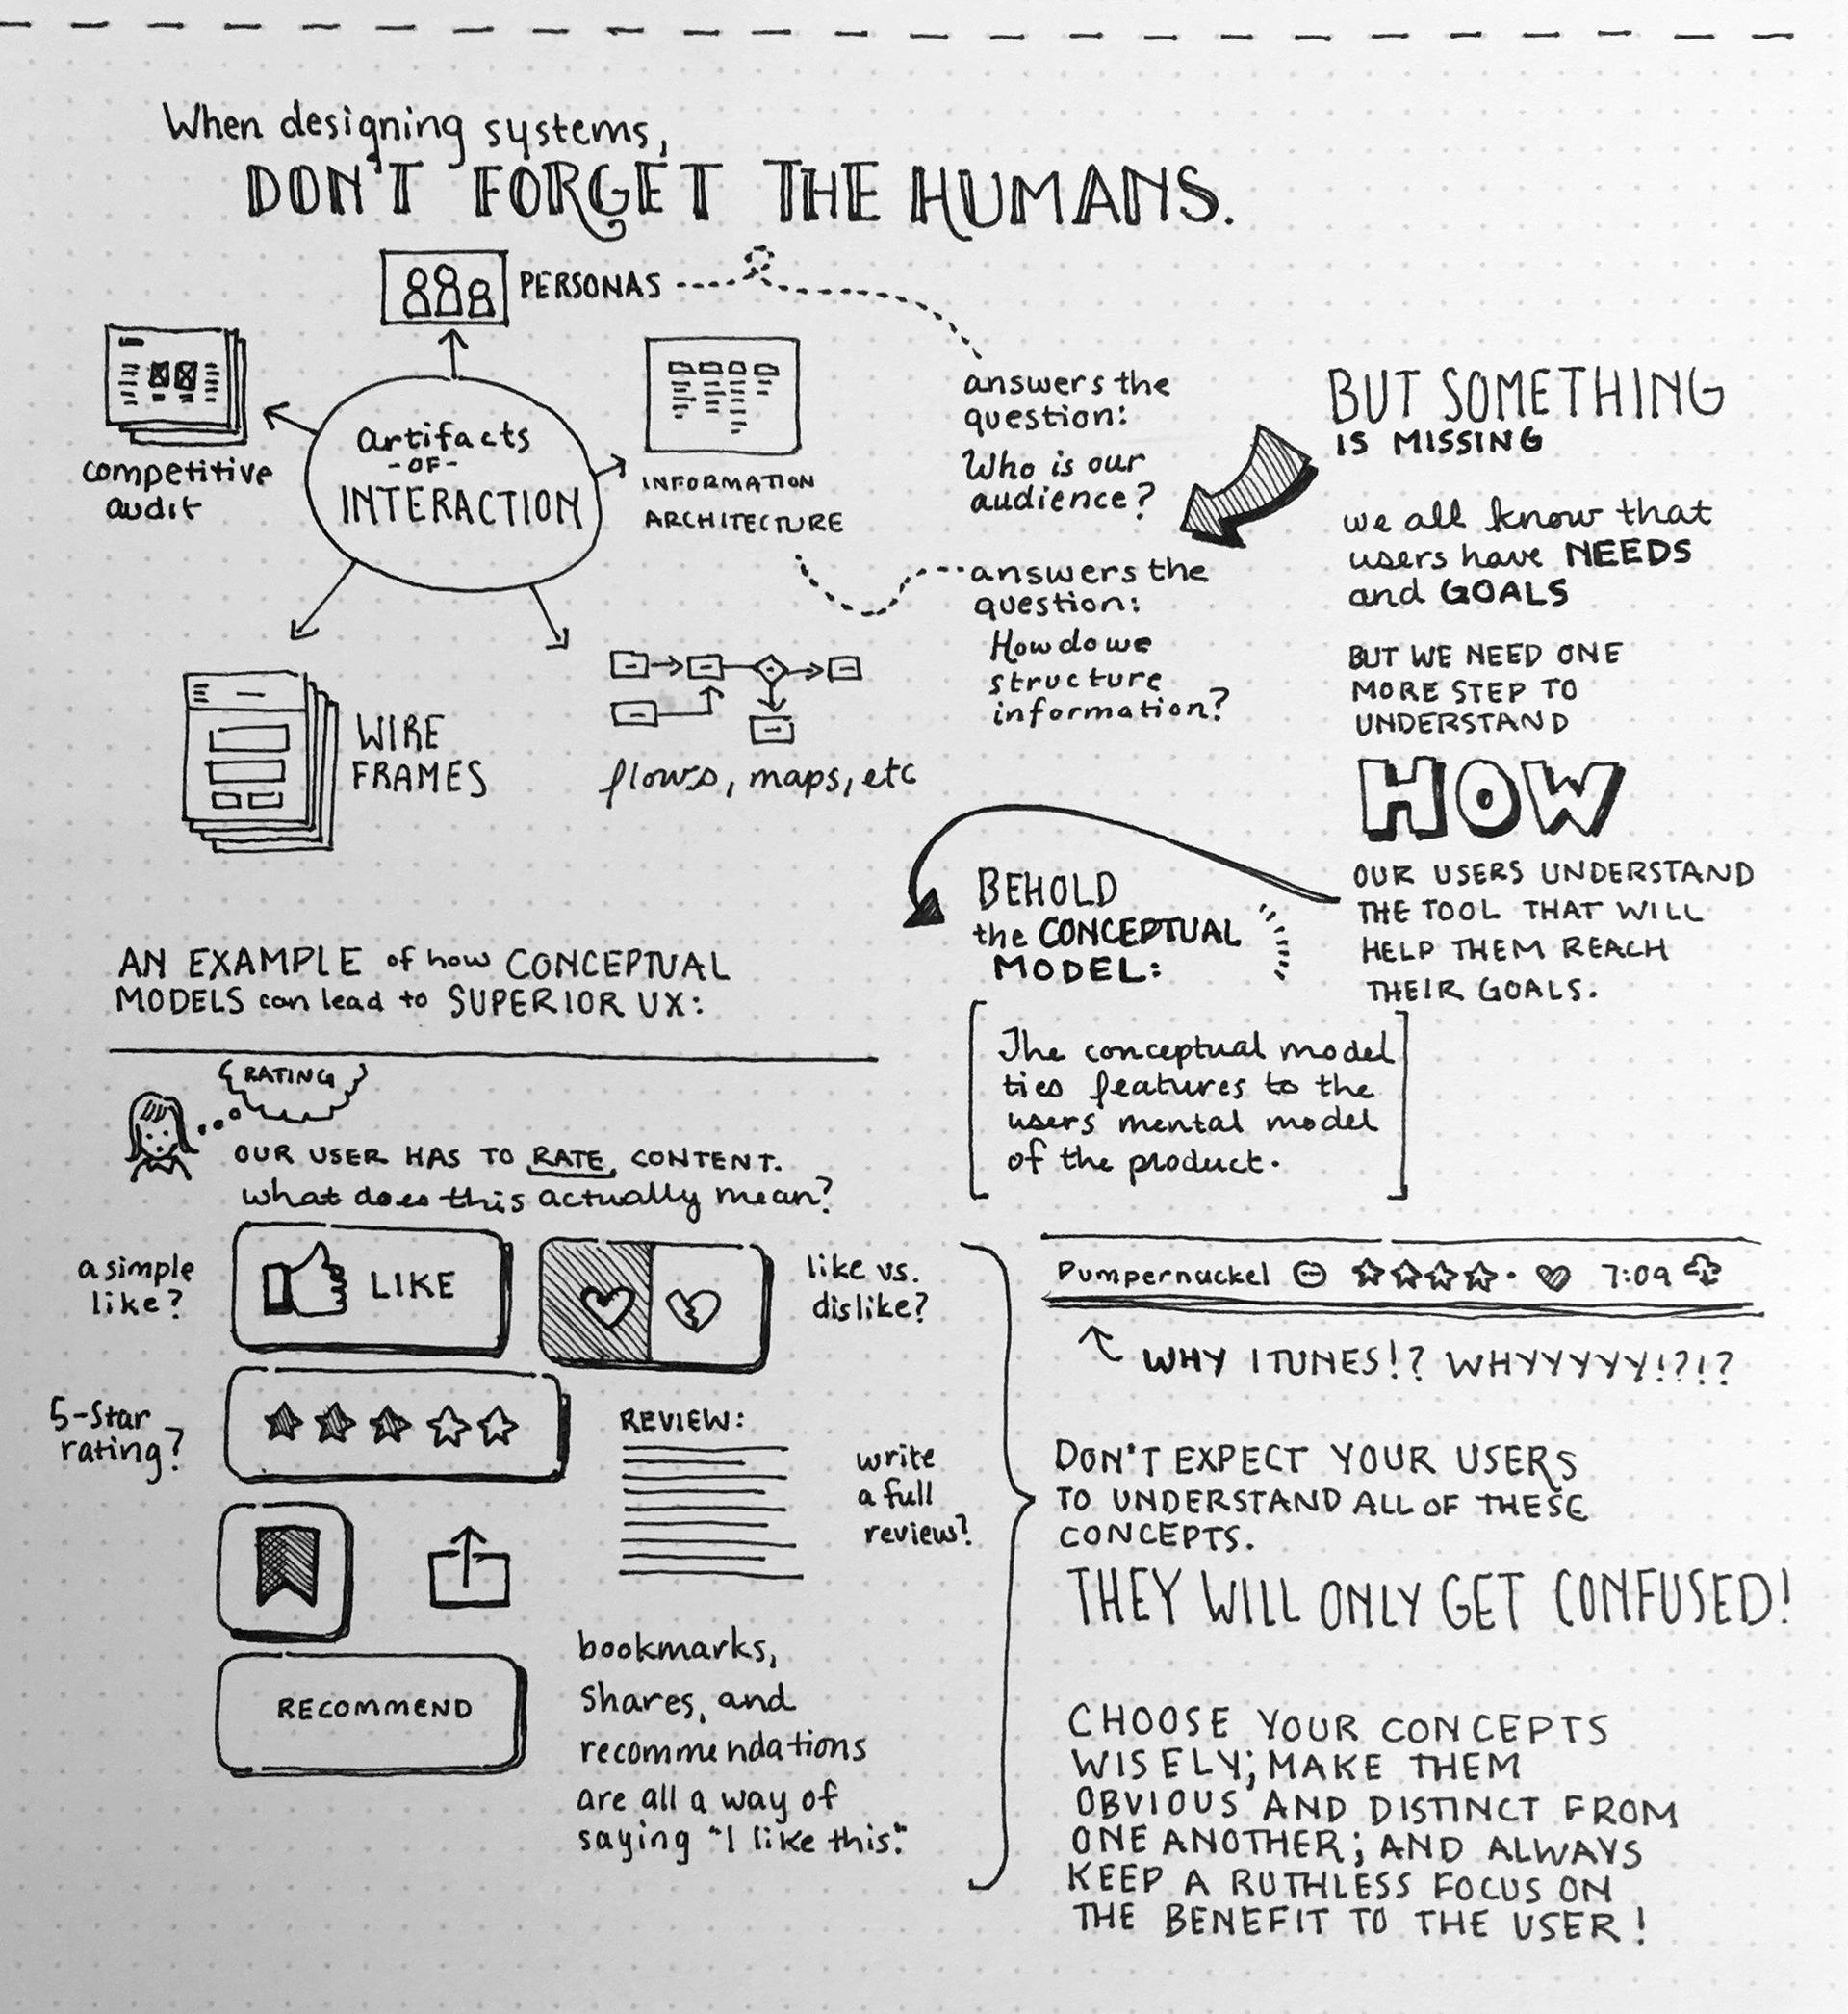 When designing systems,
DON'T FORGET THE HUMANS.
PERSONAS
competitive
audit
artifacts
-OF-
INTERACTION
INFORMATION
ARCHITECTURE
WIRE
FRAMES
flows, maps, etc
answers the
question:
Who is our
audience?
answers the
question:
How do we
structure
information?
BUT SOMETHING
IS MISSING
we all know that
users have NEEDS
and GOALS
BUT WE NEED ONE
MORE STEP TO
UNDERSTAND
HOW
OUR USERS UNDERSTAND
THE TOOL THAT WILL
HELP THEM REACH
THEIR GOALS.
BEHOLD
the CONCEPTUAL
MODEL:
The conceptual model
ties features to the
users mental model
of the product.
AN EXAMPLE of how CONCEPTUAL
MODELS can lead to SUPERIOR UX:
RATING
OUR USER HAS TO RATE CONTENT.
what does this actually mean?
a simple
like?
LIKE
like vs.
dislike?
5-Star
rating?
REVIEW:
write
a full
review?
RECOMMEND
bookmarks,
Shares, and
recommendations
are all a way of
saying "I like this."
Pumpernuckel 7:09
WHY ITUNES!? WHYYYYYY!?!?
DON'T EXPECT YOUR USERS
TO UNDERSTAND ALL OF THESE
CONCEPTS.
THEY WILL ONLY GET CONFUSED!
CHOOSE YOUR CONCEPTS
WISELY; MAKE THEM
OBVIOUS AND DISTINCT FROM
ONE ANOTHER; AND ALWAYS
KEEP A RUTHLESS FOCUS ON
THE BENEFIT TO THE USER!